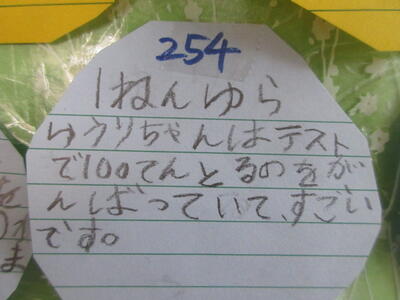 254
1ねんゆら
ゆうりちゃんはテスト
で100てんとるのをが
んばっていて、すごい
です。
を
ま